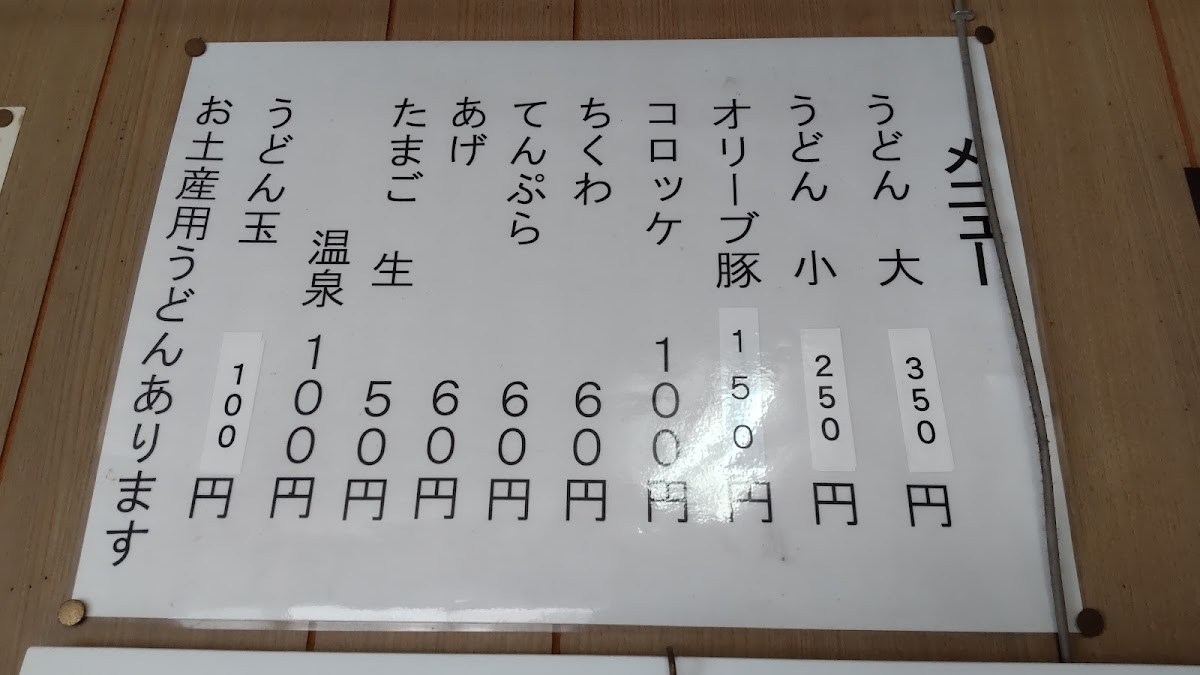 メニュー
うどん 大 350円
うどん 小 250円
オリーブ豚 150円
コロッケ 100円
ちくわ 60円
てんぷら 60円
あげ 60円
たまご 生 50円
温泉 100円
うどん玉 100円
お土産用うどんあります